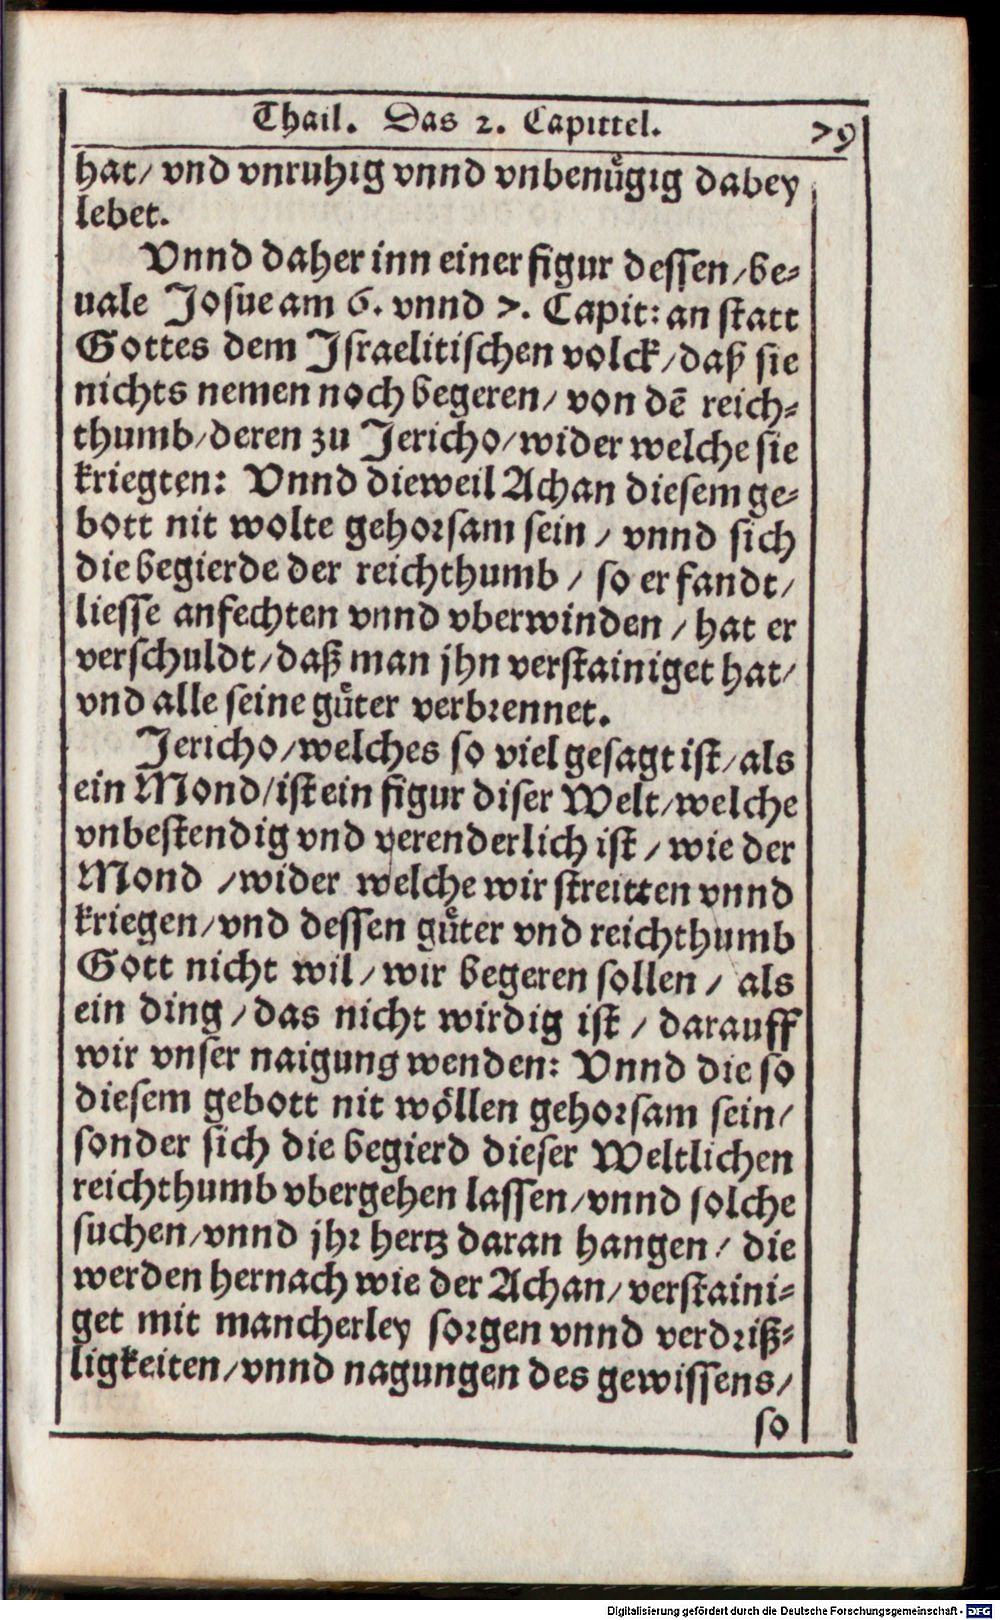 Thail. Das 2. Capittel. 79
hat/ vnd vnruhig vnnd vnbenuͤgig dabey
lebet.
Vnnd daher inn einer figur dessen/be-
uale Josue am 6. vnnd 7. Capit: an statt
Gottes dem Jsraelitischen volck/daß sie
nichts nemen noch begeren/ von dē reich-
thumb/deren zu Jericho/wider welche sie
kriegten: Vnnd dieweil Achan diesem ge-
bott nit wolte gehorsam sein / vnnd sich
die begierde der reichthumb / so er fandt/
liesse anfechten vnnd vberwinden / hat er
verschuldt/daß man jhn verstainiget hat/
vnd alle seine guͤter verbrennet.
Jericho/welches so viel gesagt ist/als
ein Mond/ist ein figur diser Welt/welche
vnbestendig vnd verenderlich ist / wie der
Mond /wider welche wir streitten vnnd
kriegen/vnd dessen guͤter vnd reichthumb
Gott nicht wil/wir begeren sollen / als
ein ding /das nicht wirdig ist / darauff
wir vnser naigung wenden: Vnnd die so
diesem gebott nit wöllen gehorsam sein/
sonder sich die begierd dieser Weltlichen
reichthumb vbergehen lassen/vnnd solche
suchen/vnnd jhr hertz daran hangen/ die
werden hernach wie der Achan/verstaini-
get mit mancherley sorgen vnnd verdriß-
ligkeiten/vnnd nagungen des gewissens/
so
Digitalisierung gefördert durch die Deutsche Forschungsgemeinschaft - DFG